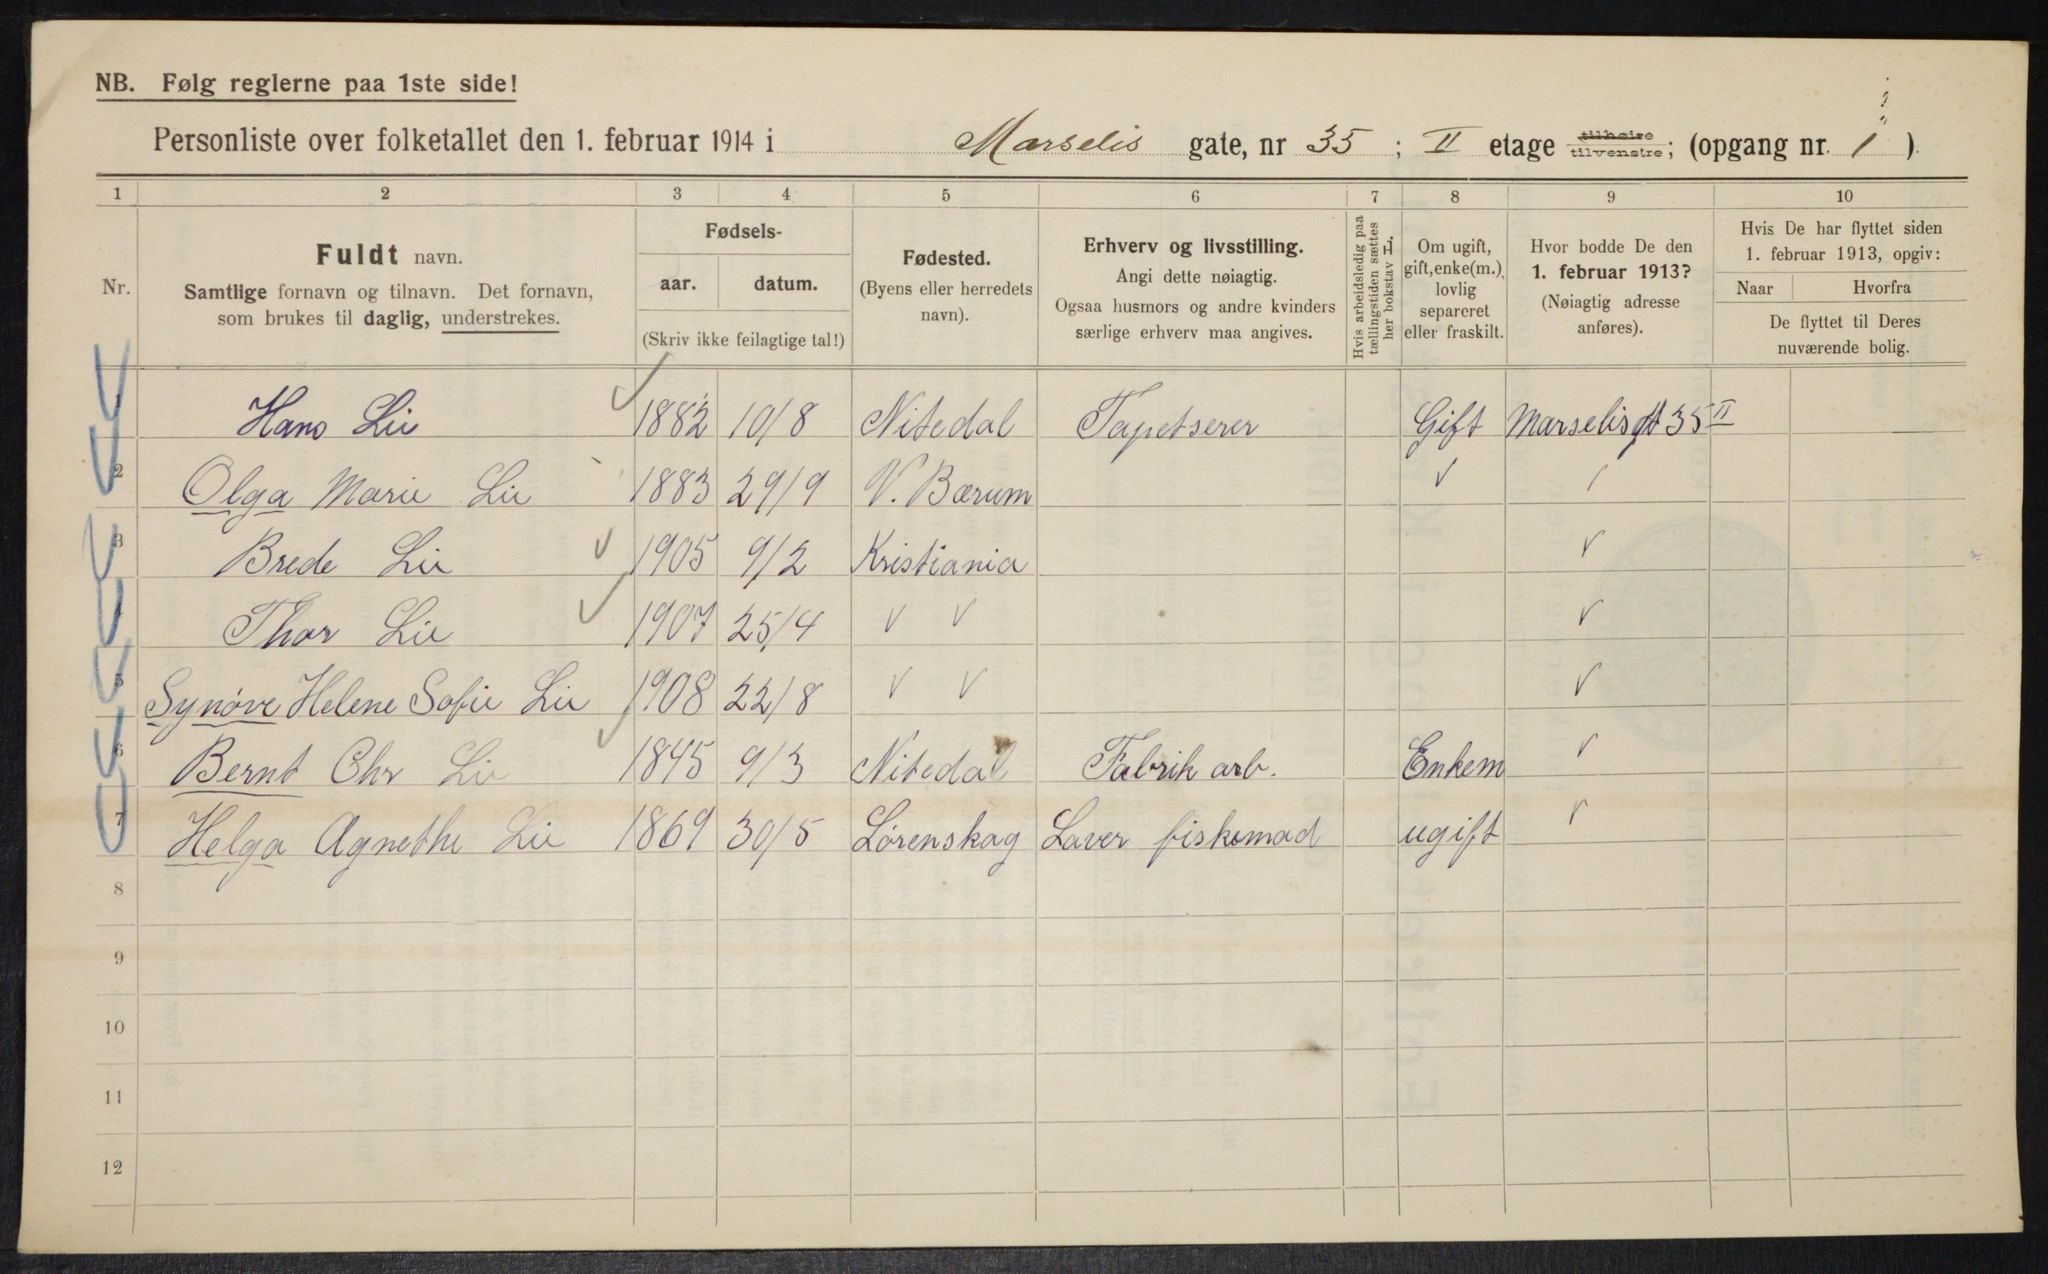 NB. Følg reglerne paa 1ste side!
Personliste over folketallet den 1. februar 1914 i Marselis gate, nr 35 ; II etage tilhøire tilvenstre; (opgang nr. 1 ).
1 2 3 4 5 6 7 8 9 10
Nr.
Fuldt navn.
Samtlige fornavn og tilnavn. Det fornavn,
som brukes til daglig, understrekes.
Fødsels-
aar. datum.
(Skriv ikke feilagtige tal!)
Fødested.
(Byens eller herredets
navn).
Erhverv og livsstilling.
Angi dette nøiagtig.
Ogsaa husmors og andre kvinders
særlige erhverv maa angives.
Hvis arbeidsledig paa
tællingstiden sættes
her bokstav L.
Om ugift,
gift, enke(m.),
lovlig
separeret
eller fraskilt.
Hvor bodde De den
1. februar 1913?
(Nøiagtig adresse
anføres).
Hvis De har flyttet siden
1. februar 1913, opgiv:
Naar Hvorfra
De flyttet til Deres
nuværende bolig.
1 Hans Lie 1882 10/8 Nitedal Tapetserer Gift Marselisgt 35 II
2 Olga Marie Lie 1883 29/9 V. Bærum √ /
3 Brede Lie 1905 9/2 Kristiania √
4 Thor Lie 1907 25/4 √ √ √
5 Synøve Helene Sofie Lie 1908 22/8 √ √ √
6 Bernt Chr Lie 1845 9/3 Nitedal Fabrik arb. Enkem √
7 Helga Agnethe Lie 1869 30/5 Lørenskog Laver fiskemad ugift √
8
9
10
11
12